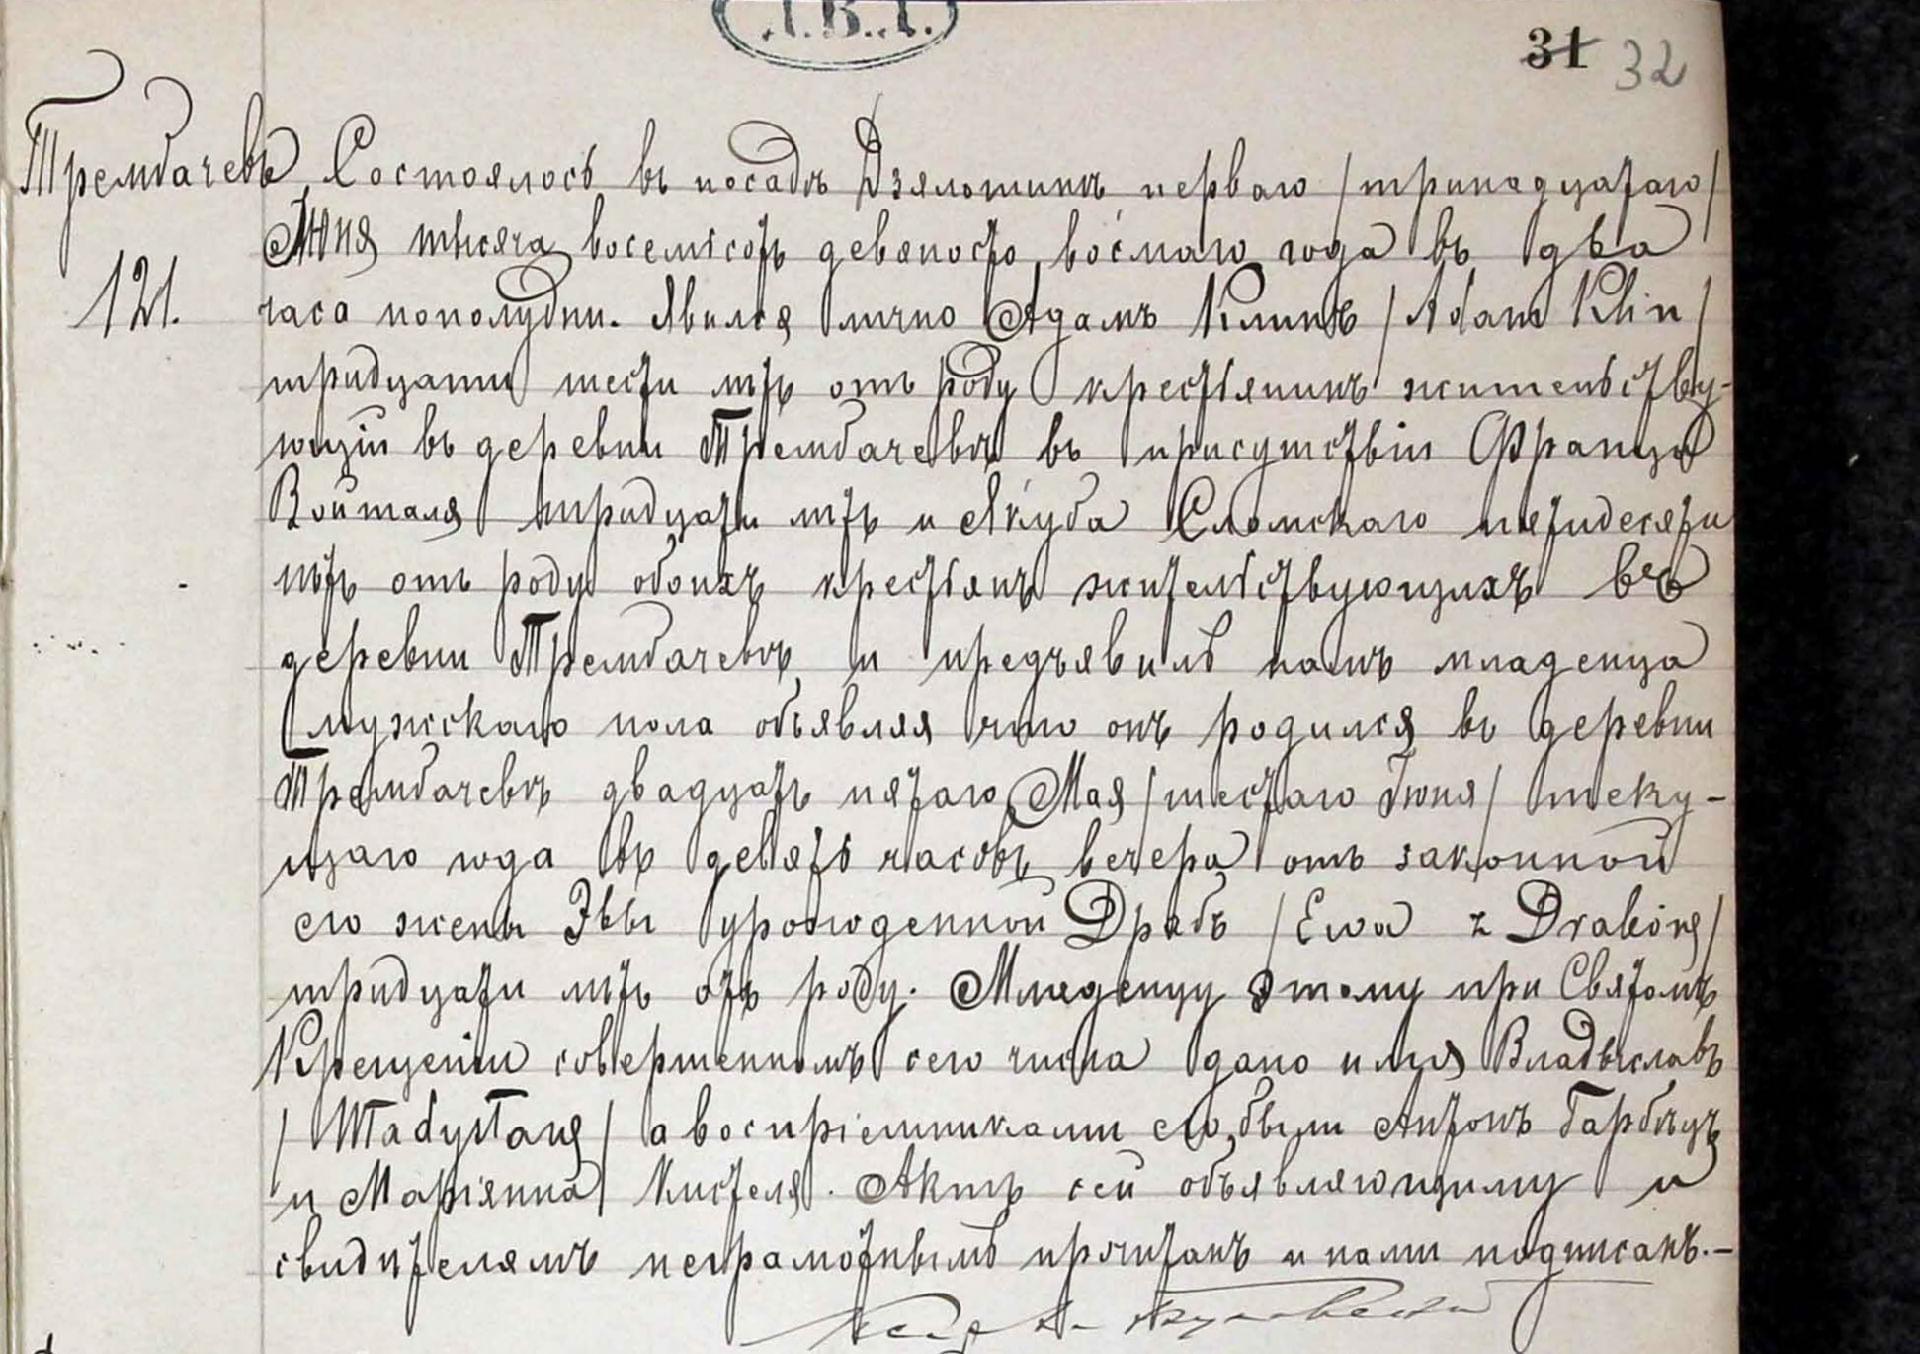 Л.В.Г.
31 32
Трембачевъ
121.
Состоялось въ посадѣ Дзялошинѣ перваго /тринадцатаго/
Іюня тысяча восемьсотъ девяносто восьмаго года въ два
часа пополудни. Явился лично Адамъ Клинъ /Adam Klin/
тридцати шести лѣтъ отъ роду крестьянинъ жительству-
ющій въ деревни Трембачевѣ въ присутствіи Франца
Войталя тридцати лѣтъ и Якуба Сломскаго пятидесяти
лѣтъ отъ роду обоихъ крестьянъ жительствующихъ въ
деревни Трембачевѣ, и предъявилъ намъ младенца
мужскаго пола объявляя что онъ родился въ деревни
Трембачевѣ двадцать пятаго Мая /шестаго Іюня/ теку-
щаго года въ девять часовъ вечера отъ законной
его жены Эвы урожденной Драбъ /Ewa z Drabów/
тридцати лѣтъ отъ роду. Младенцу этому при Святомъ
Крещеніи совершенномъ сего числа дано имя Владыславъ
/Władysław/ а воспріемниками его были Антонъ Гарбѣцъ
и Маріянна Кистеля. Актъ сей объявляющему и
свидѣтелямъ неграмотнымъ прочитанъ и нами подписанъ.-